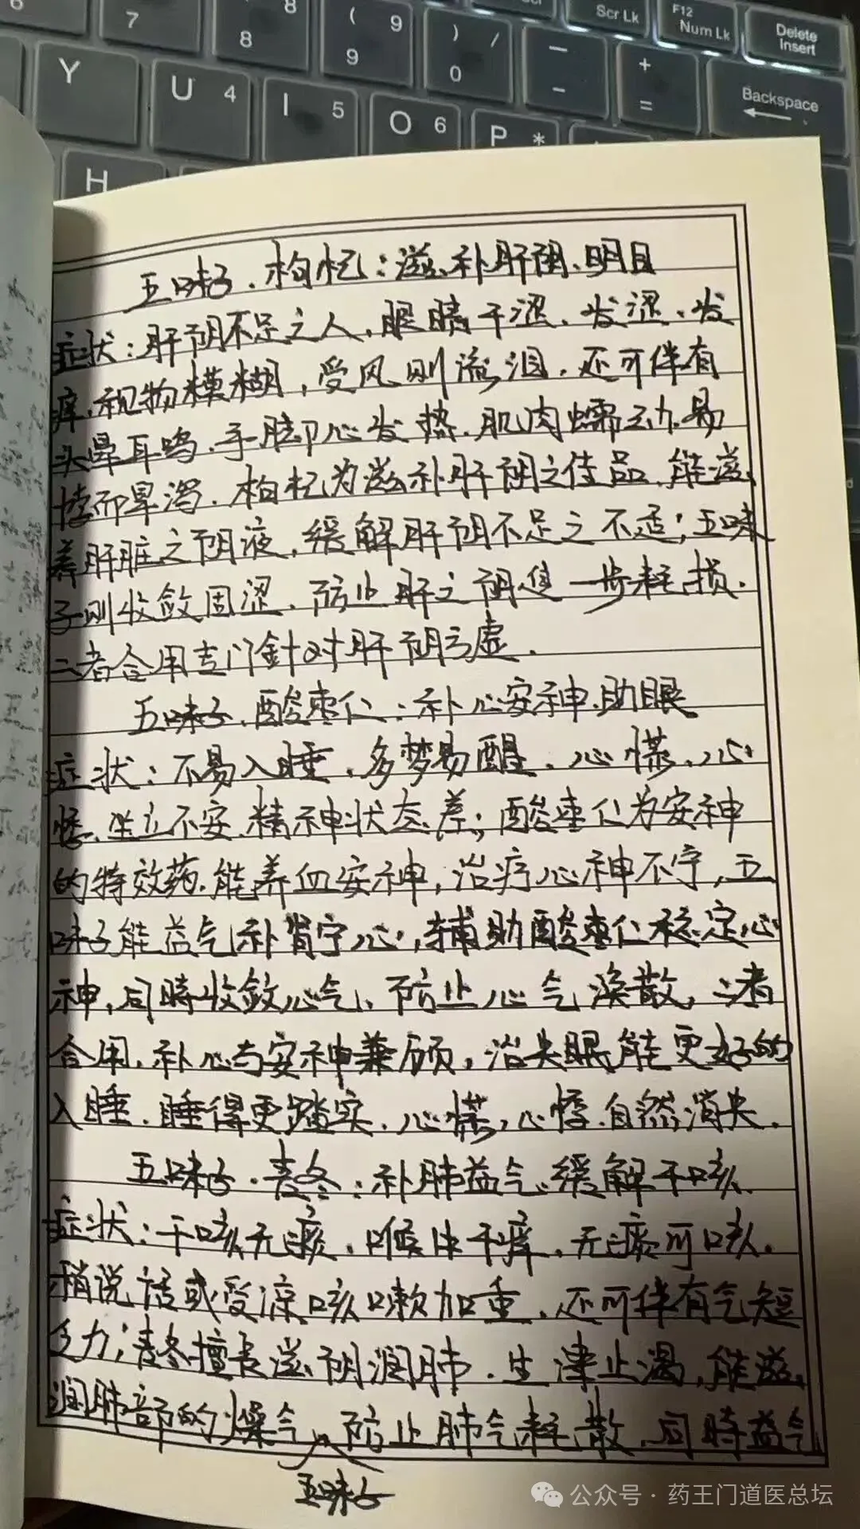 7
8
8
( 9
9
) /
0
—
-
+
=
Scr Lk
F12
Num Lk
Delete
Insert
Backspace
Y
U 4
I 5
O 6
P *
H
五味子、枸杞：滋补肝阴、明目
症状：肝阴不足之人，眼睛干涩、发涩、发
痒、视物模糊，受风则流泪，还可伴有
头晕耳鸣、手脚心发热、肌肉蠕动、易
养肝脏之阴液，缓解肝阴不足之不适；五味
子则收敛固涩、防止肝之阴进一步耗损．
二者合用专门针对肝阴亏虚．
五味子、酸枣仁：补心安神、助眠
症状：不易入睡、多梦易醒、心慌、心
悸、坐立不安、精神状态差；酸枣仁为安神
的特效药，能养血安神，治疗心神不宁，五
味子能益气补肾宁心，辅助酸枣仁稳定心
神，同時收敛心气、防止心气涣散，二者
合用，补心与安神兼顾，治失眠能更好的
入睡、睡得更踏实、心慌，心悸、自然消失．
五味子、麦冬：补肺益气、缓解干咳
症状：干咳无痰、喉中干痒、无痰可咳、
稍说话或受凉咳嗽加重、还可伴有气短
乏力；麦冬擅长滋阴润肺、生津止渴，能滋
润肺部的燥气，防止肺气耗散，同時益气
五味子
公众号·药王门道医总坛